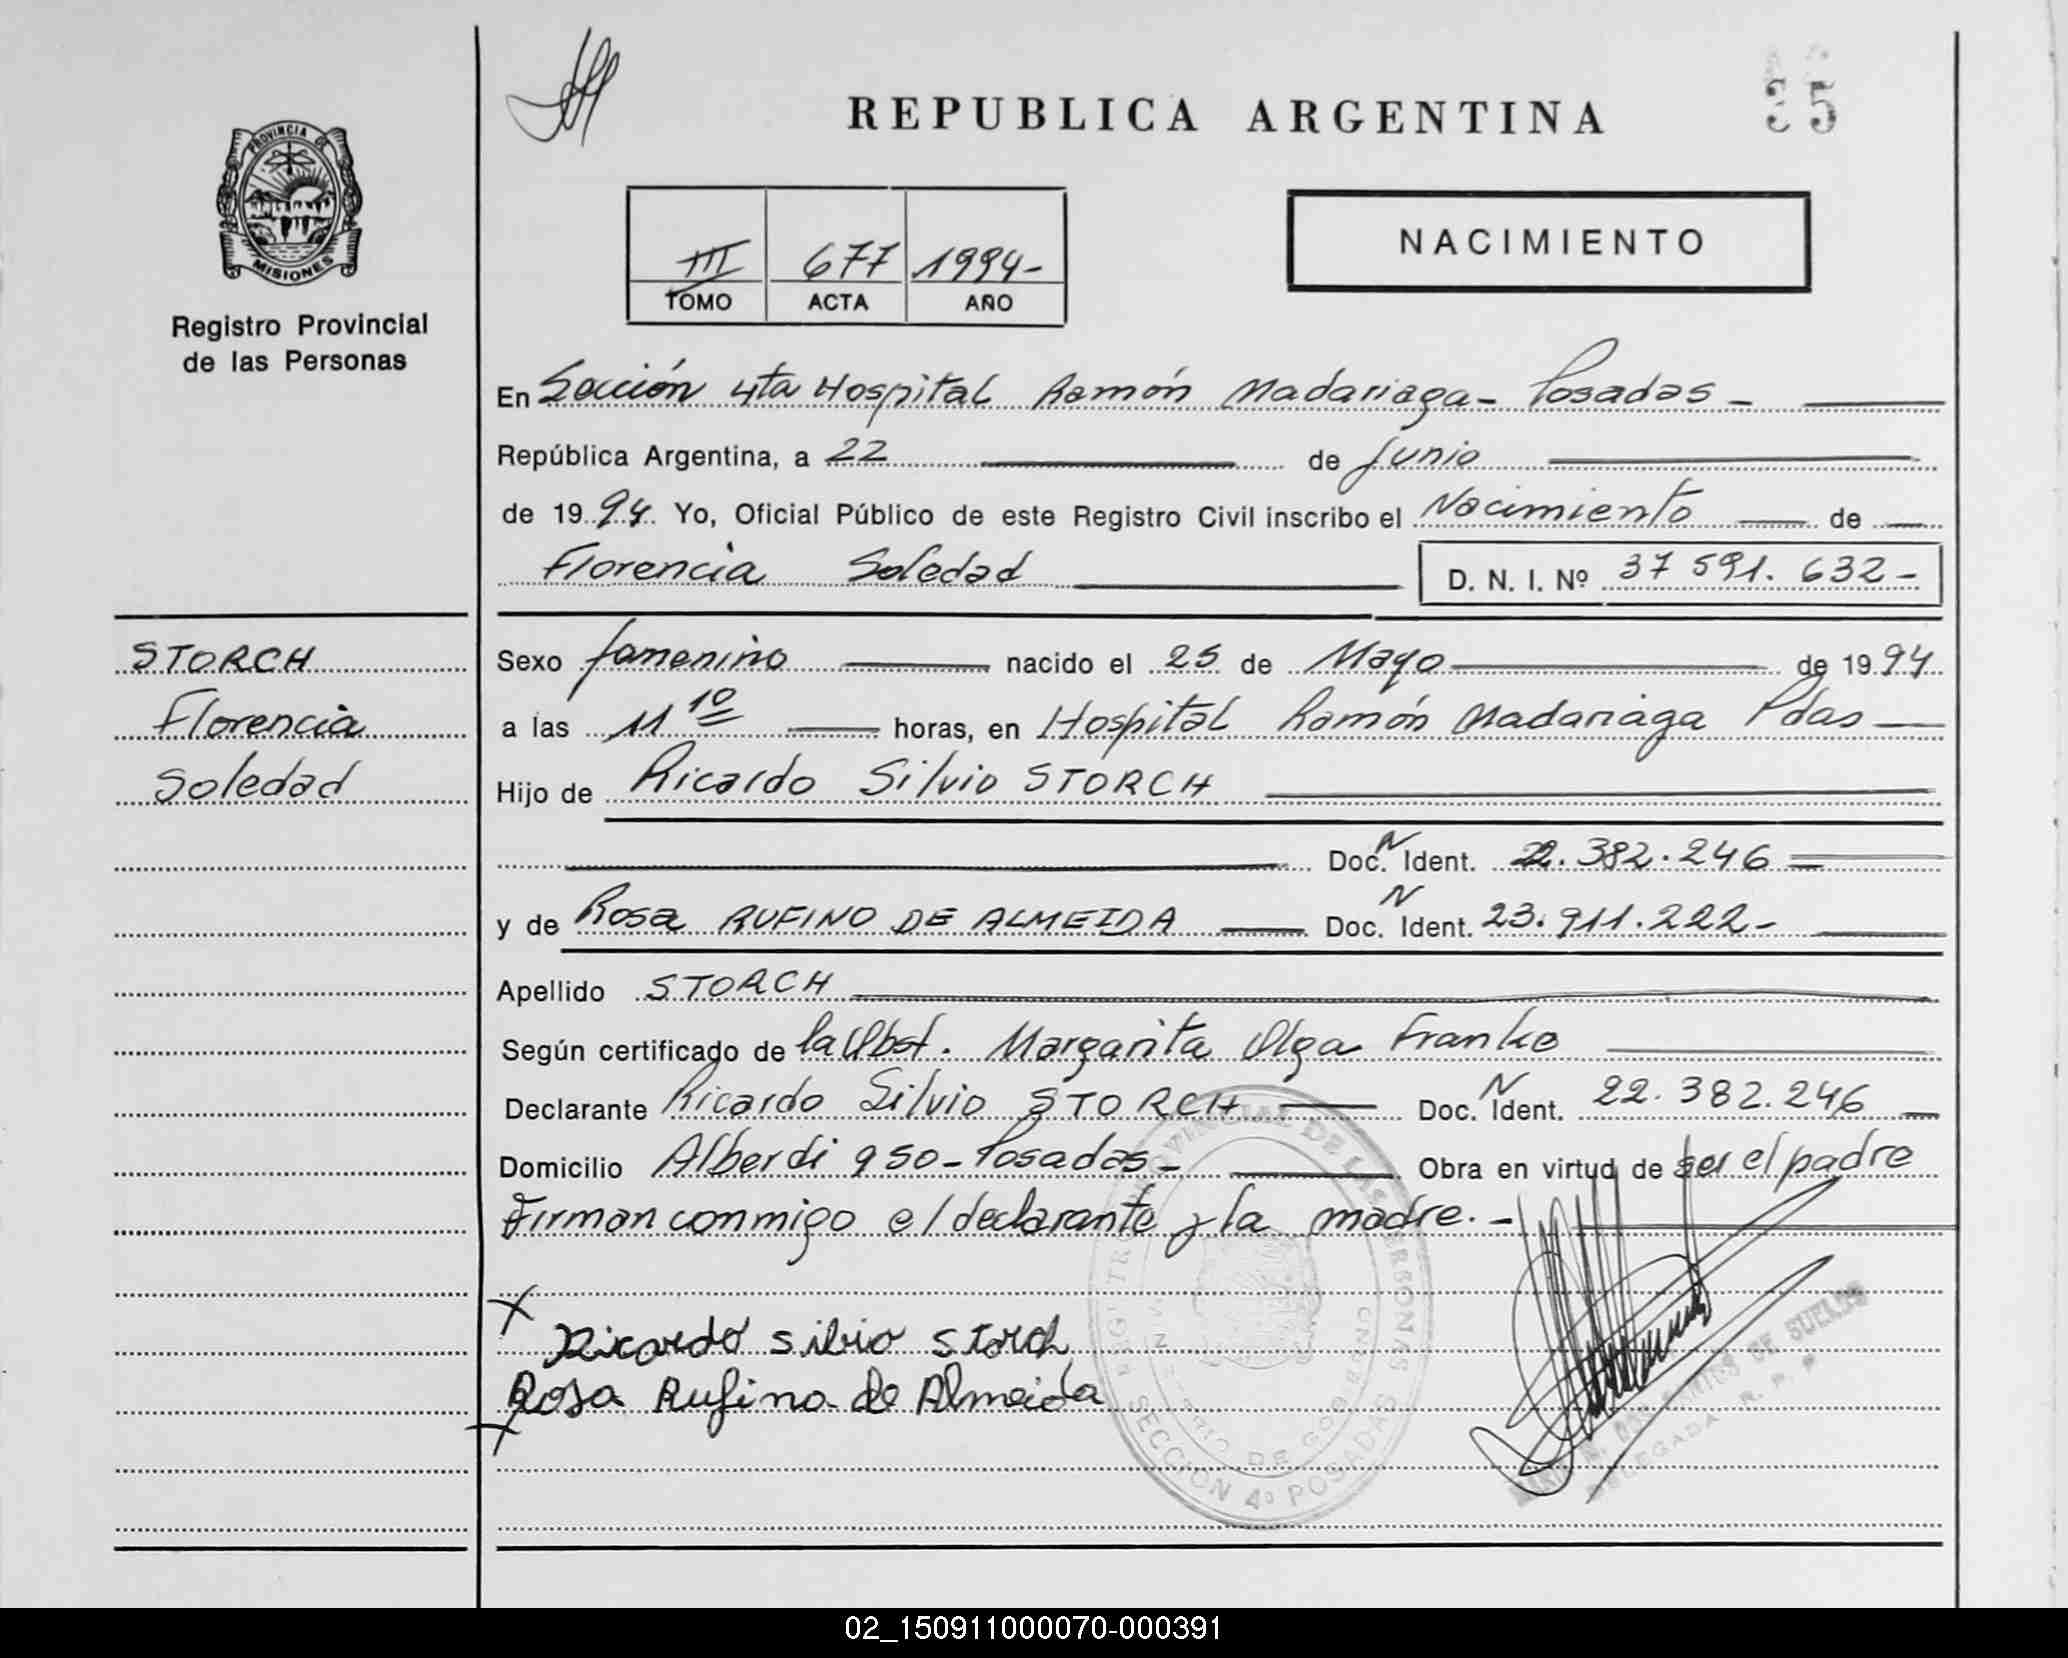 REPUBLICA ARGENTINA
35
PROVINCIA DE
MISIONES
Registro Provincial
de las Personas
III 677 1994-
TOMO ACTA AÑO
NACIMIENTO
En Sección 4ta Hospital Ramón Madariaga - Posadas -
República Argentina, a 22 de Junio
de 1994. Yo, Oficial Público de este Registro Civil inscribo el Nacimiento de
Florencia Soledad D. N. I. Nº 37 591. 632 -
STORCH
Florencia
Soledad
Sexo femenino nacido el 25 de Mayo de 1994
a las 11 10 horas, en Hospital Ramón Madariaga Pdas
Hijo de Ricardo Silvio STORCH
Doc. N Ident. 22.382.246
y de Rosa RUFINO DE ALMEIDA Doc. N Ident. 23.911.222-
Apellido STORCH
Según certificado de la Obst. Margarita Olga Franke
Declarante Ricardo Silvio STORCH Doc. N Ident. 22.382.246
Domicilio Alberdi 950 - Posadas - Obra en virtud de ser el padre
Firman conmigo el declarante y la madre. -
X
Ricardo silvio storch
Rosa Rufino de Almeida
X
REGISTRO PROVINCIAL DE LAS PERSONAS
MINISTERIO DE GOBIERNO
SECCION 4º POSADAS
DE SUELDO
DELEGADA R. P. P.
02_150911000070-000391